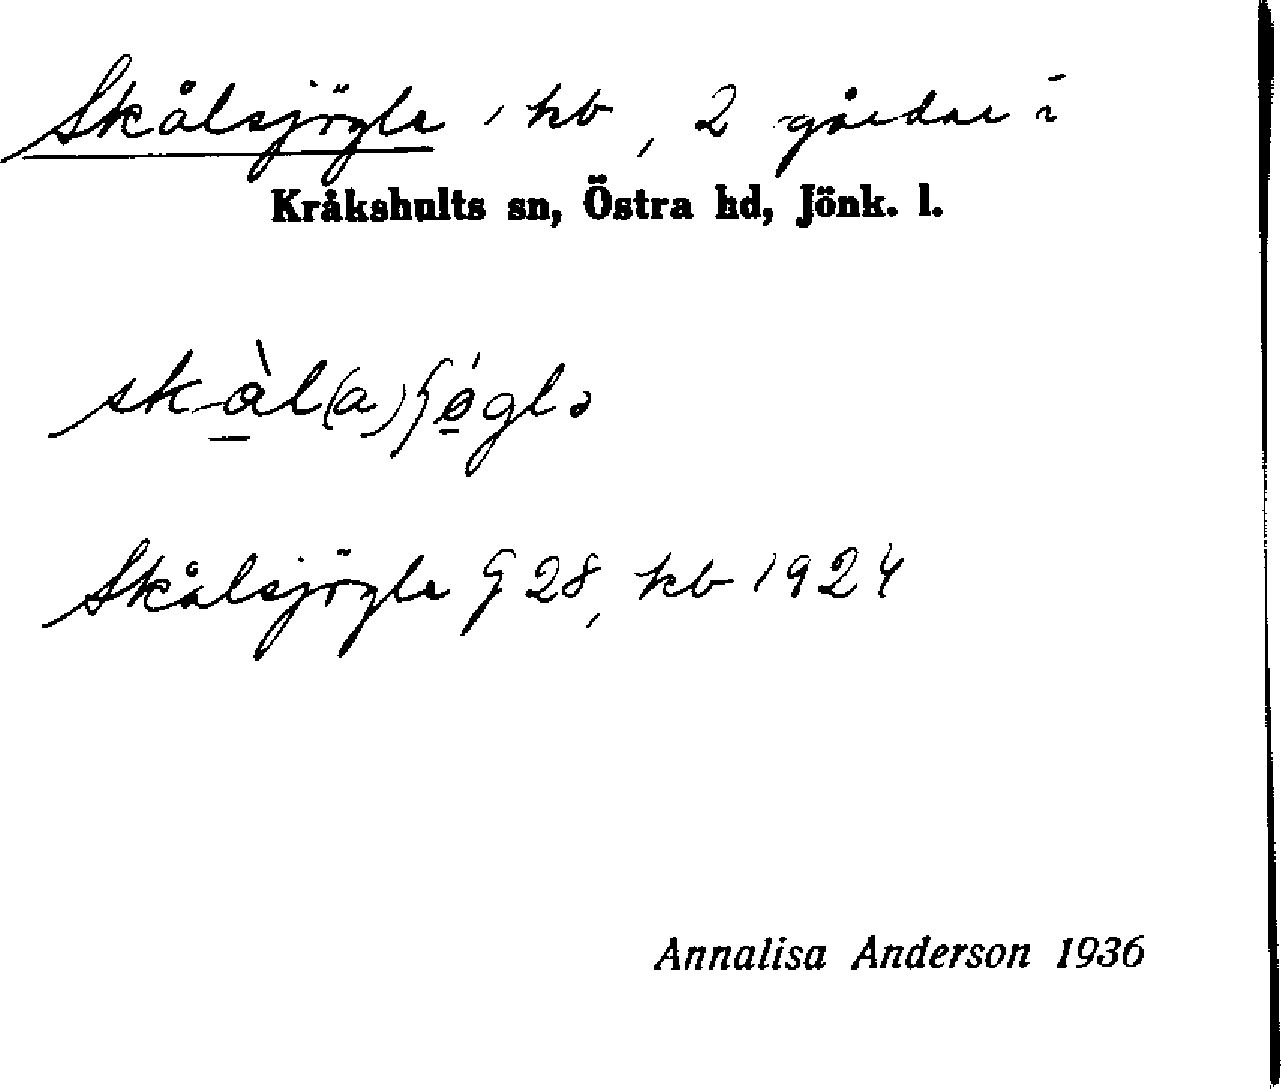 Skålsjögle, hb, 2 gårdar i
Kråkshults sn, Östra hd, Jönk. l.
Skålsjögle G 28, kb 1924
Annalisa Anderson 1936